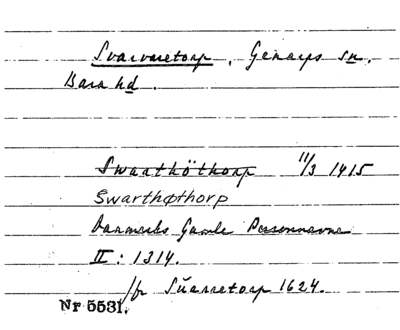 Svarvaretorp, Genarps sn,
Bara hd.
Swarthöthorp 11/3 1415
Swarthøthorp
Danmarks Gamle Personnavne
II: 1314.
/fr Suarretorp 1624.
Nr 5531.